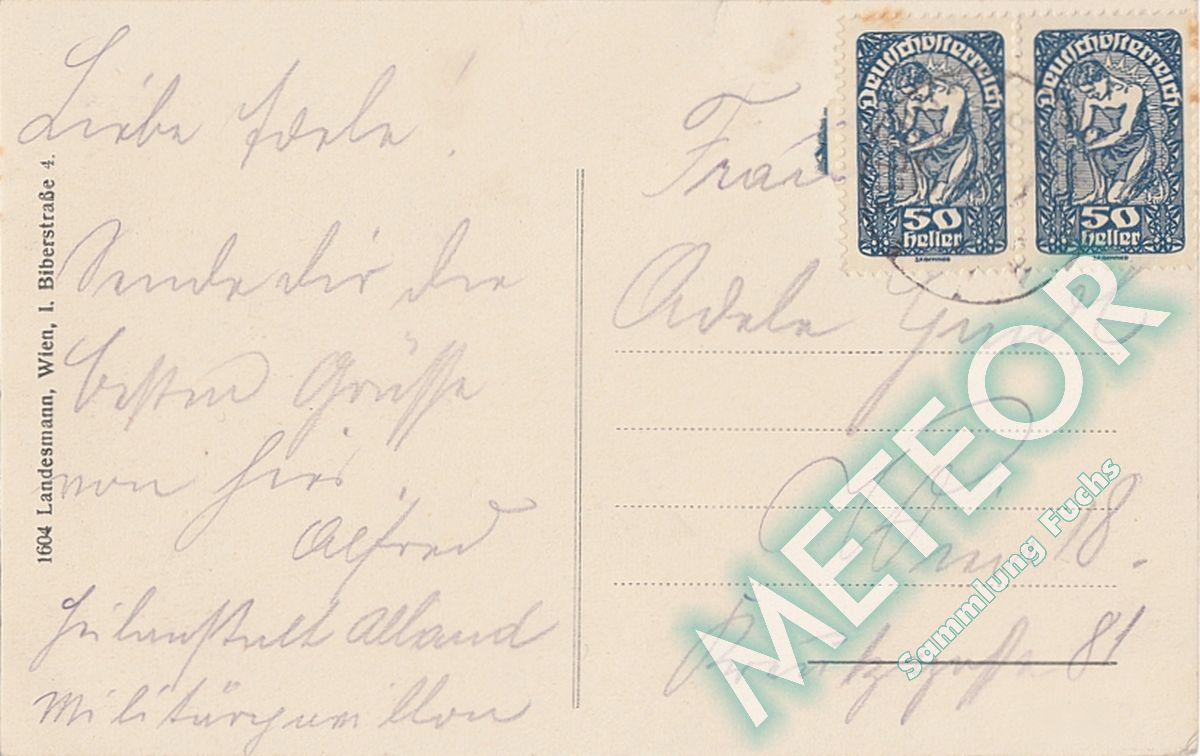 Liebe Adele!
Sende dir die
besten Grüsse
von hier.
Alfred
Heilanstalt Alland
Militärpavillon
1604 Landesmann, Wien, I. Biberstraße 4.
Deutschösterreich
50
heller
Deutschösterreich
50
heller
Frau
Adele
Wien 18.
81
METEOR
Sammlung Fuchs